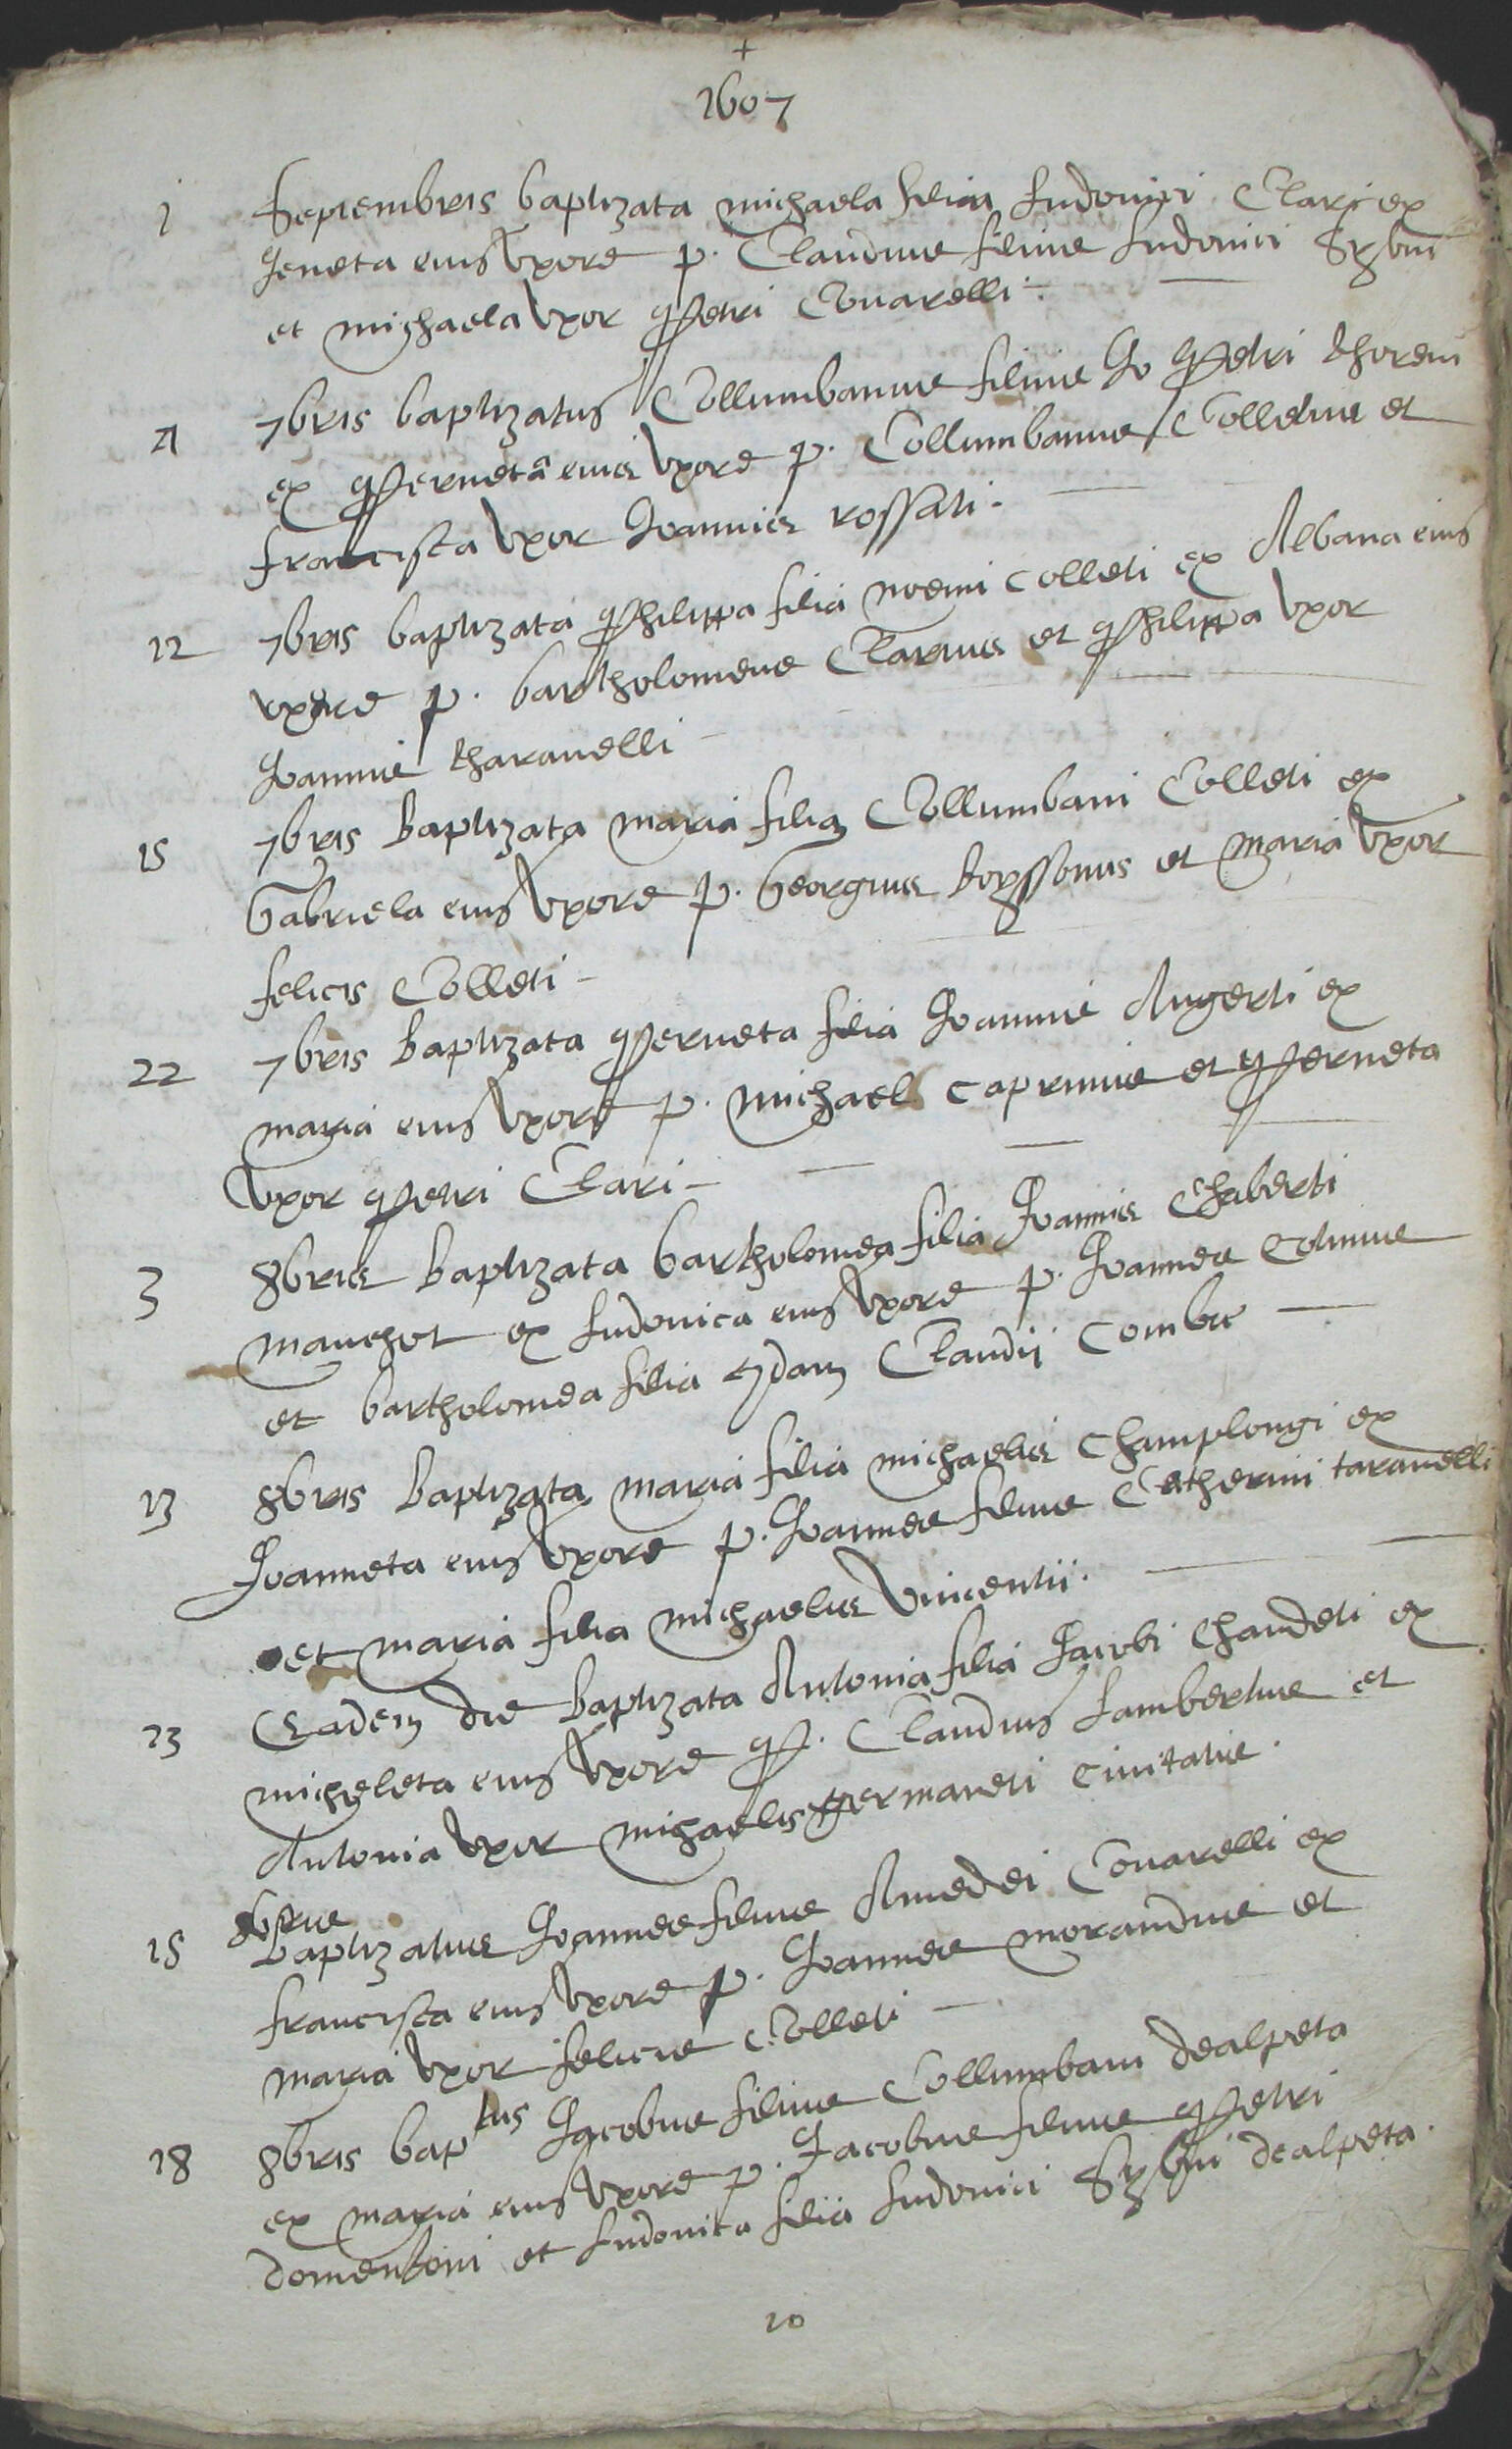 +
1607
1 Septembris baptizata michaela filia Ludovici Clari ex
Jeneta eius Uxore p. Claudius filius Ludovici
et michaela Uxor Petri Covarelli -
4 7bris baptizatus Collumbanus filius Jo Petri
ex Perneta eius Uxore p. Collumbanus Colletus et
francisca Uxor Joannis rossati -
12 7bris baptizata Philippa filia noemi Colleti ex Albana eius
uxore p. bartholomeus Clarius et Philippa Uxor
Joannis tharavelli -
15 7bris Baptizata maria filia Collumbani Colleti ex
Gabriela eius Uxore p. Georgius Boyssonus et maria Uxor
felicis Colleti -
22 7bris Baptizata Perneta filia Joannis Augerti ex
maria eius Uxore p. michael caprinus et Perneta
Uxor Petri Clari -
3 8bris Baptizata bartholomea filia Joannis Chaberti
manchot ex Ludovica eius Uxore p. Joannes Colinus
et bartholomea filia qdam Claudij Combe -
13 8bris Baptizata maria filia michaelis Champlongi ex
Joanneta eius Uxore p. Joannes filius Catherini taravelli
et maria filia michaelis Vincentii.
23 Eadem die Baptizata Antonia filia Jacobi Chaudeti ex
micheleta eius Uxore P. Claudius Lambertus et
Antonia Uxor michaelis germaneti Civitatis.
8bris
15 baptizatus Joannes filius Amedei Covarelli ex
francisca eius Uxore p. Joannes morandus et
maria Uxor felicis Colleti -
18 8bris bap tus Jacobus filius Collumbani dealpeta
ex maria eius Uxore p. Jacobus filius Petri
domenioni et Ludovica filia Ludovici dealpeta.
10